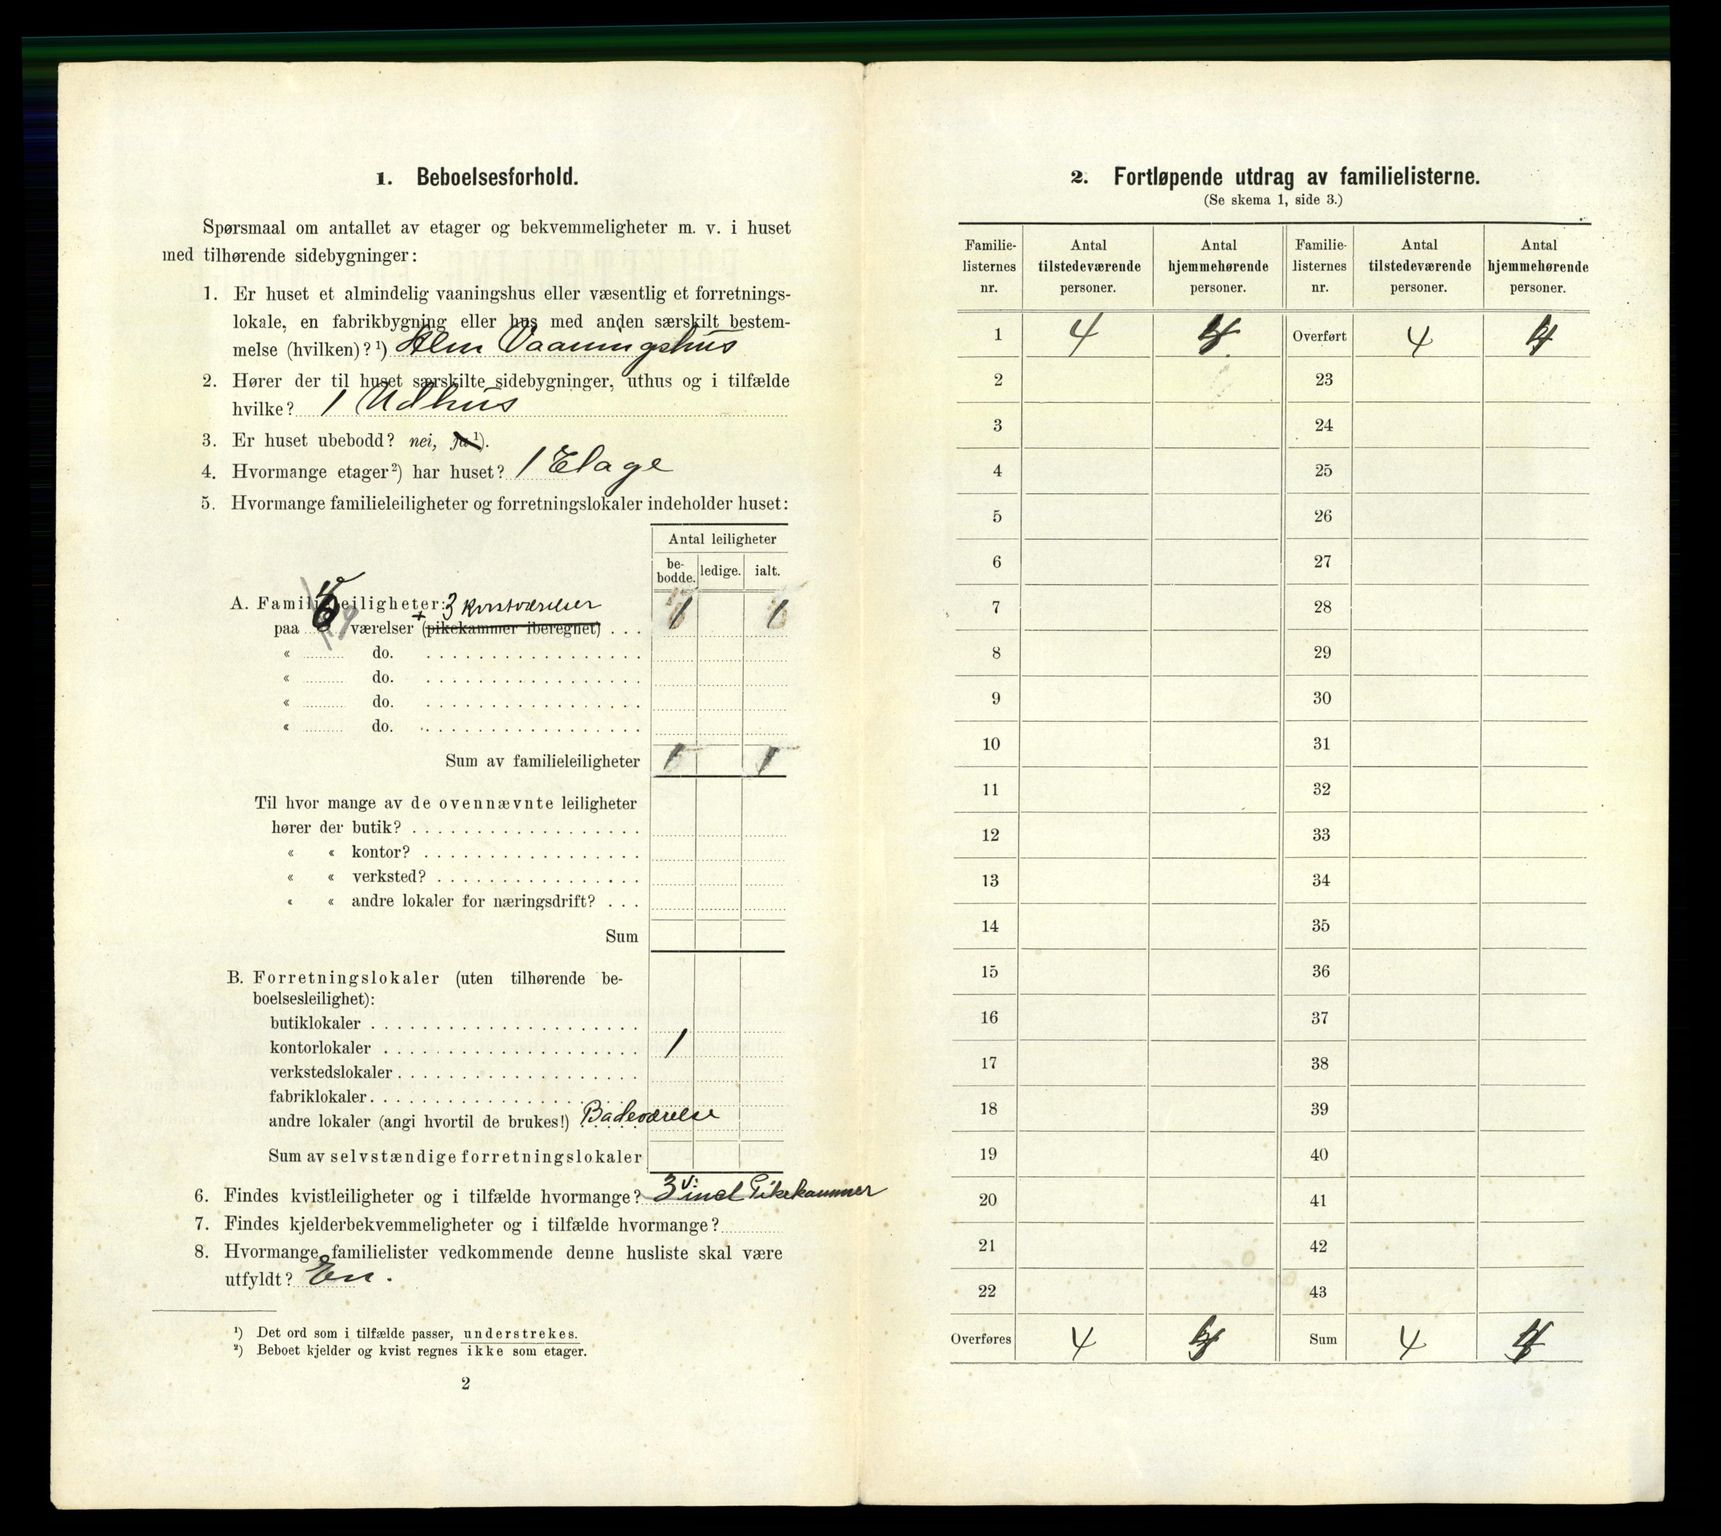 1. Beboelsesforhold.
Spørsmaal om antallet av etager og bekvemmeligheter m. v. i huset
med tilhørende sidebygninger:
1. Er huset et almindelig vaaningshus eller væsentlig et forretnings-
lokale, en fabrikbygning eller hus med anden særskilt bestem-
melse (hvilken)?¹) Alm Vaaningshus
2. Hører der til huset særskilte sidebygninger, uthus og i tilfælde
hvilke? 1 Udhus
3. Er huset ubebodd? nei, ja¹).
4. Hvormange etager²) har huset? 1 Etage
5. Hvormange familieleiligheter og forretningslokaler indeholder huset:
Antal leiligheter
be-bodde. ledige. ialt.
A. Familieleiligheter: 3 kvistværelser
paa værelser + (pikekammer iberegnet) . . . 1 1
« do.
« do.
« do.
« do.
Sum av familieleiligheter 1 1
Til hvor mange av de ovennævnte leiligheter
hører der butik?
« « kontor?
« « verksted?
« « andre lokaler for næringsdrift?
Sum
B. Forretningslokaler (uten tilhørende be-
boelsesleilighet):
butiklokaler
kontorlokaler 1
verkstedslokaler
fabriklokaler
andre lokaler (angi hvortil de brukes!) Badeværelse
Sum av selvstændige forretningslokaler
6. Findes kvistleiligheter og i tilfælde hvormange? 3 v: incl Pikekammer
7. Findes kjelderbekvemmeligheter og i tilfælde hvormange?
8. Hvormange familielister vedkommende denne husliste skal være
utfyldt? En.
¹) Det ord som i tilfælde passer, understrekes.
²) Beboet kjelder og kvist regnes ikke som etager.
2
2. Fortløpende utdrag av familielisterne.
(Se skema 1, side 3.)
Familie-listernes nr. Antal tilstedeværende personer. Antal hjemmehørende personer. Familie-listernes nr. Antal tilstedeværende personer. Antal hjemmehørende personer.
1 4 4 Overført 4 4
2 23
3 24
4 25
5 26
6 27
7 28
8 29
9 30
10 31
11 32
12 33
13 34
14 35
15 36
16 37
17 38
18 39
19 40
20 41
21 42
22 43
Overføres 4 4 Sum 4 4